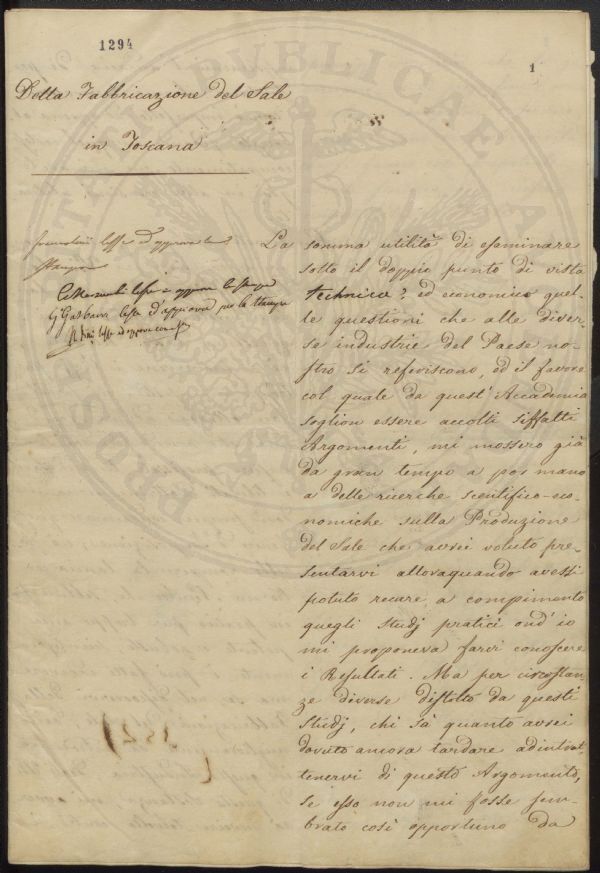 1294
1
Della Fabbricazione del Sale
in Toscana
lesse ed approva la
Stampa
lesse e approva la stampa
G Gasbarri lesse e d'approva per la Stampa
lesse ed approva
La somma utilità di esaminare
sotto il doppio punto di vista
technico ed economico quel-
le questioni che alle diver-
se industrie del Paese no-
stro si referiscono, ed il favore
col quale da quest' Accademia
soglion essere accolti siffatti
Argomenti, mi mossero già
da gran tempo a por mano
a delle ricerche scentifico-eco-
nomiche sulla Produzione
del Sale che avrei voluto pre-
sentarvi alloraquando avessi
potuto recare a compimento
quegli Studj pratici ond' io
mi proponeva farvi conoscere
i Resultati. Ma per circostan-
ze diverse distolto da questi
Studj, chi sà quanto avrei
dovuto ancora tardare ad intrat-
tenervi di questo Argomento,
se esso non mi fosse sem-
brato così opportuno da
PUBLICAE